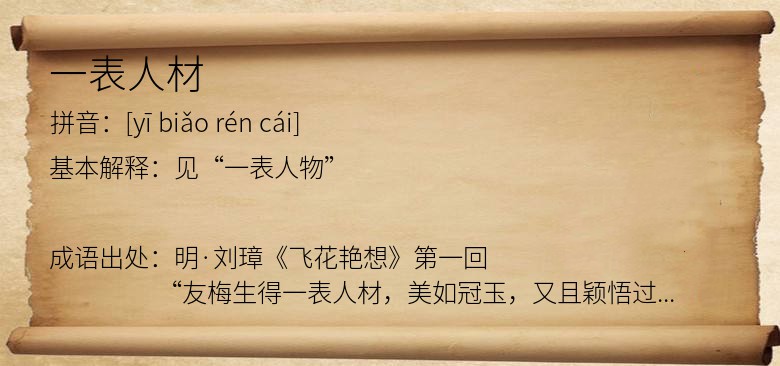 一表人材
拼音：[yī biǎo rén cái]
基本解释：见“一表人物”
成语出处：明·刘璋《飞花艳想》第一回
“友梅生得一表人材，美如冠玉，又且颖悟过...